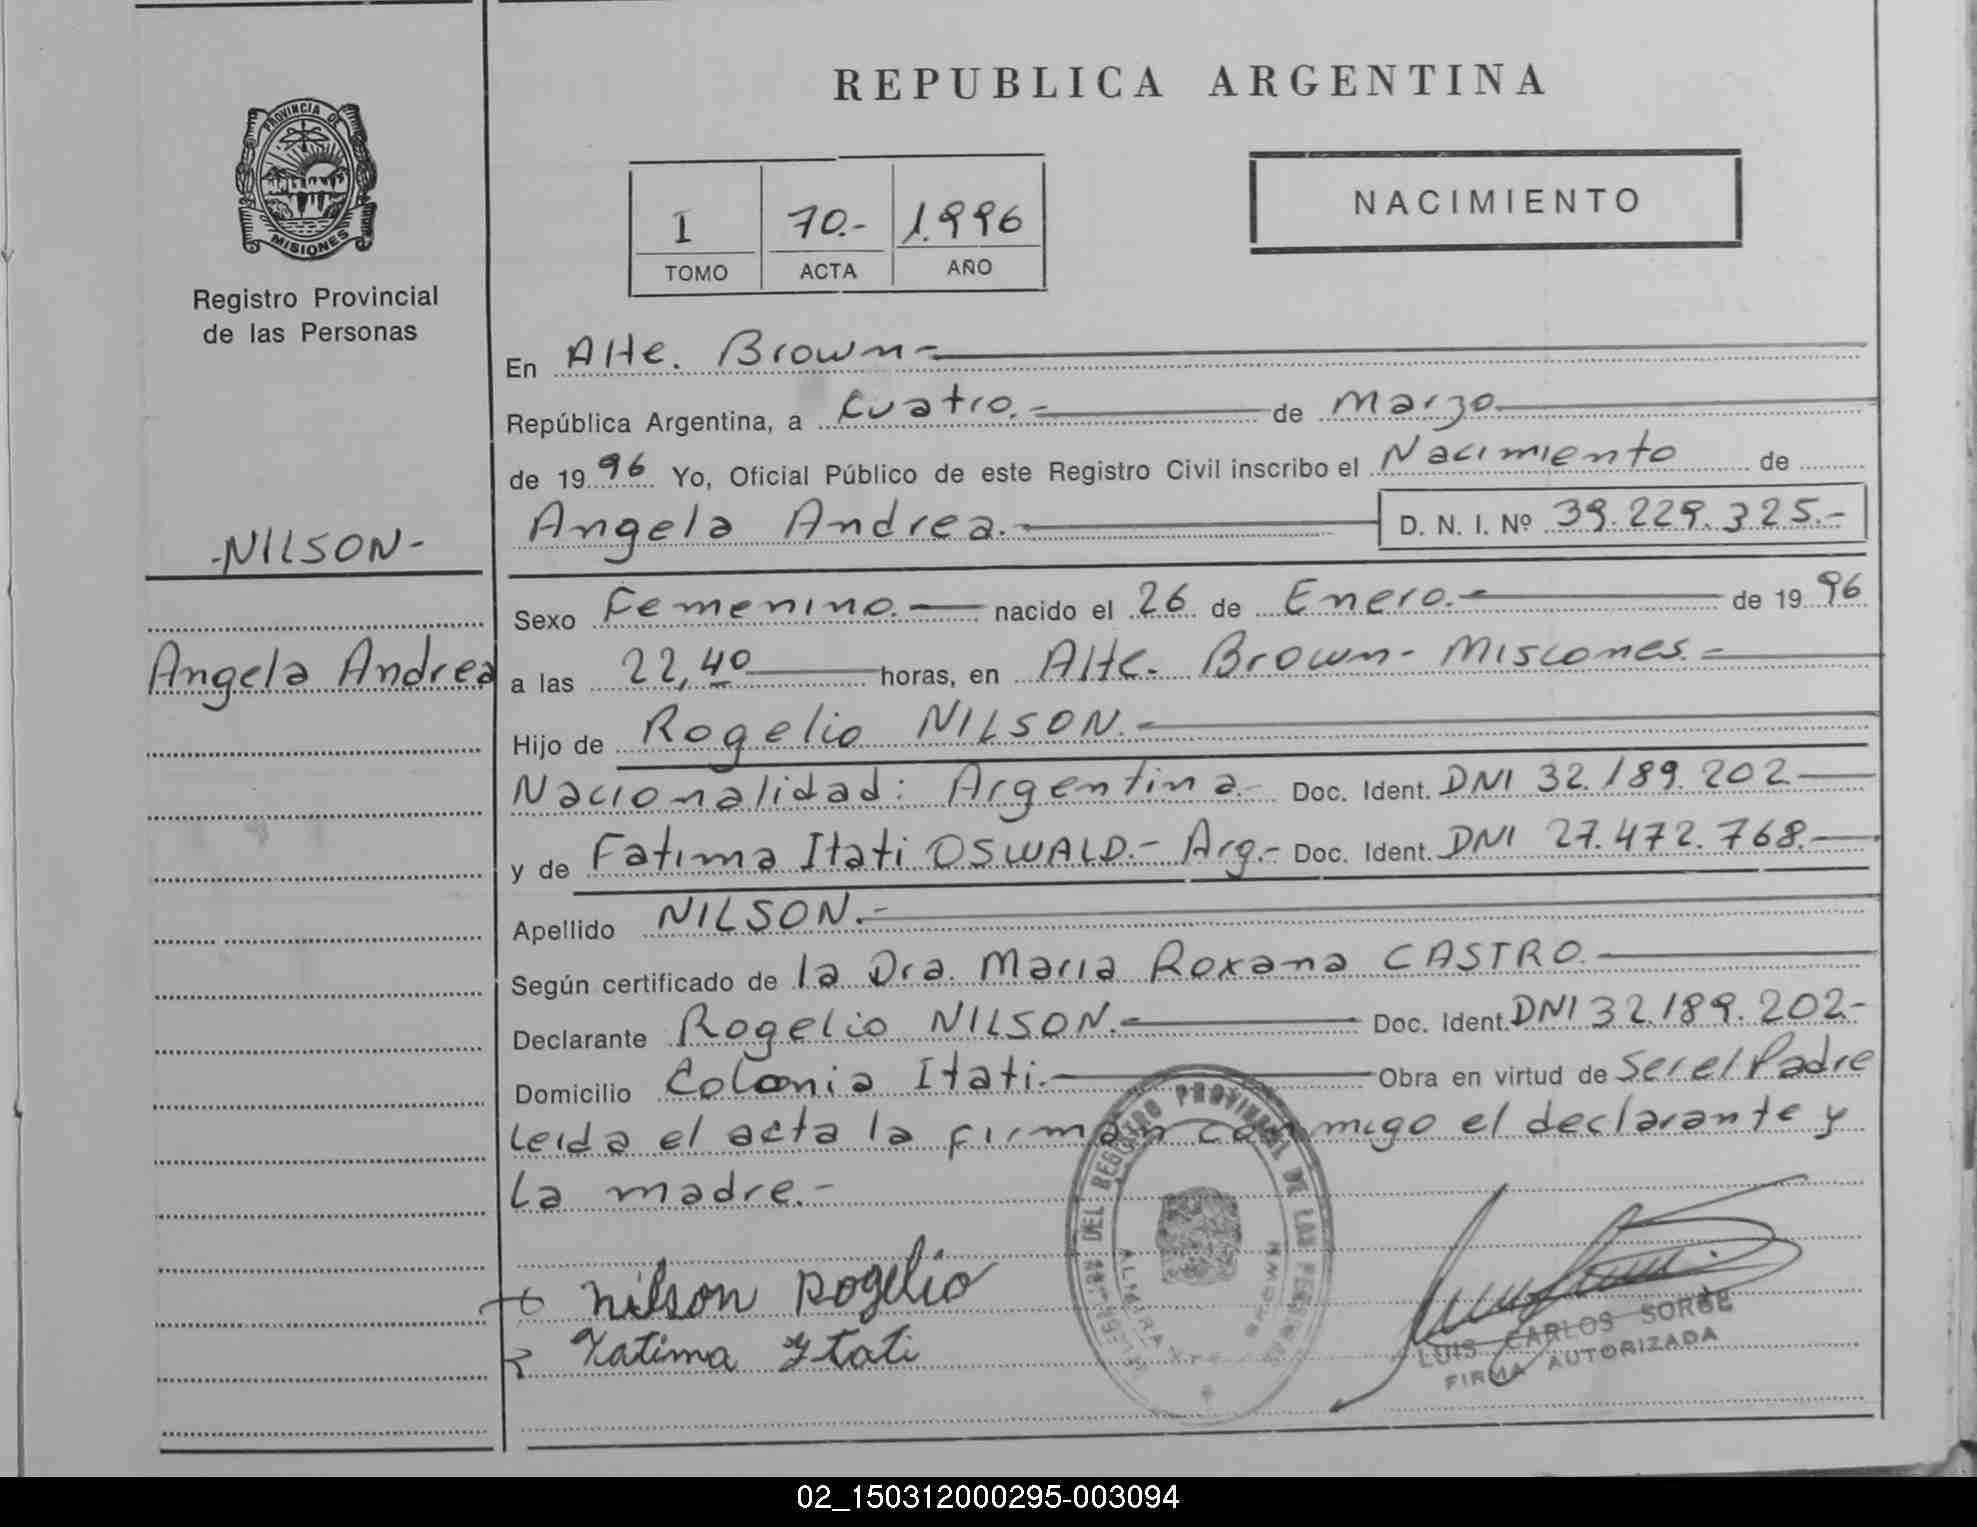 REPUBLICA ARGENTINA
PROVINCIA DE
MISIONES
Registro Provincial
de las Personas
NACIMIENTO
I 70.- 1.996
TOMO ACTA AÑO
En Alte. Brown.-
República Argentina, a cuatro.- de Marzo
de 1996 Yo, Oficial Público de este Registro Civil inscribo el Nacimiento de
Angela Andrea.- D. N. I. Nº 39.229.325.-
-NILSON-
Sexo Femenino.- nacido el 26 de Enero.- de 1996
Angela Andrea
a las 22,40 horas, en Alte. Brown- Misiones.-
Hijo de Rogelio NILSON.-
Nacionalidad: Argentina.- Doc. Ident. DNI 32.189.202
y de Fatima Itati OSWALD.- Arg.- Doc. Ident. DNI 27.472.768.-
Apellido NILSON.-
Según certificado de la Dra. Maria Roxana CASTRO.
Declarante Rogelio NILSON.- Doc. Ident. DNI 32.189.202-
Domicilio Colonia Itati.- Obra en virtud de Ser el Padre
Leida el acta la firman conmigo el declarante y
La madre.-
DEL REGISTRO PROVINCIAL DE LAS PERSONAS
ALMIRANTE BROWN
Nilson Rogelio
Fatima Itati
LUIS CARLOS SORGE
FIRMA AUTORIZADA
02_150312000295-003094